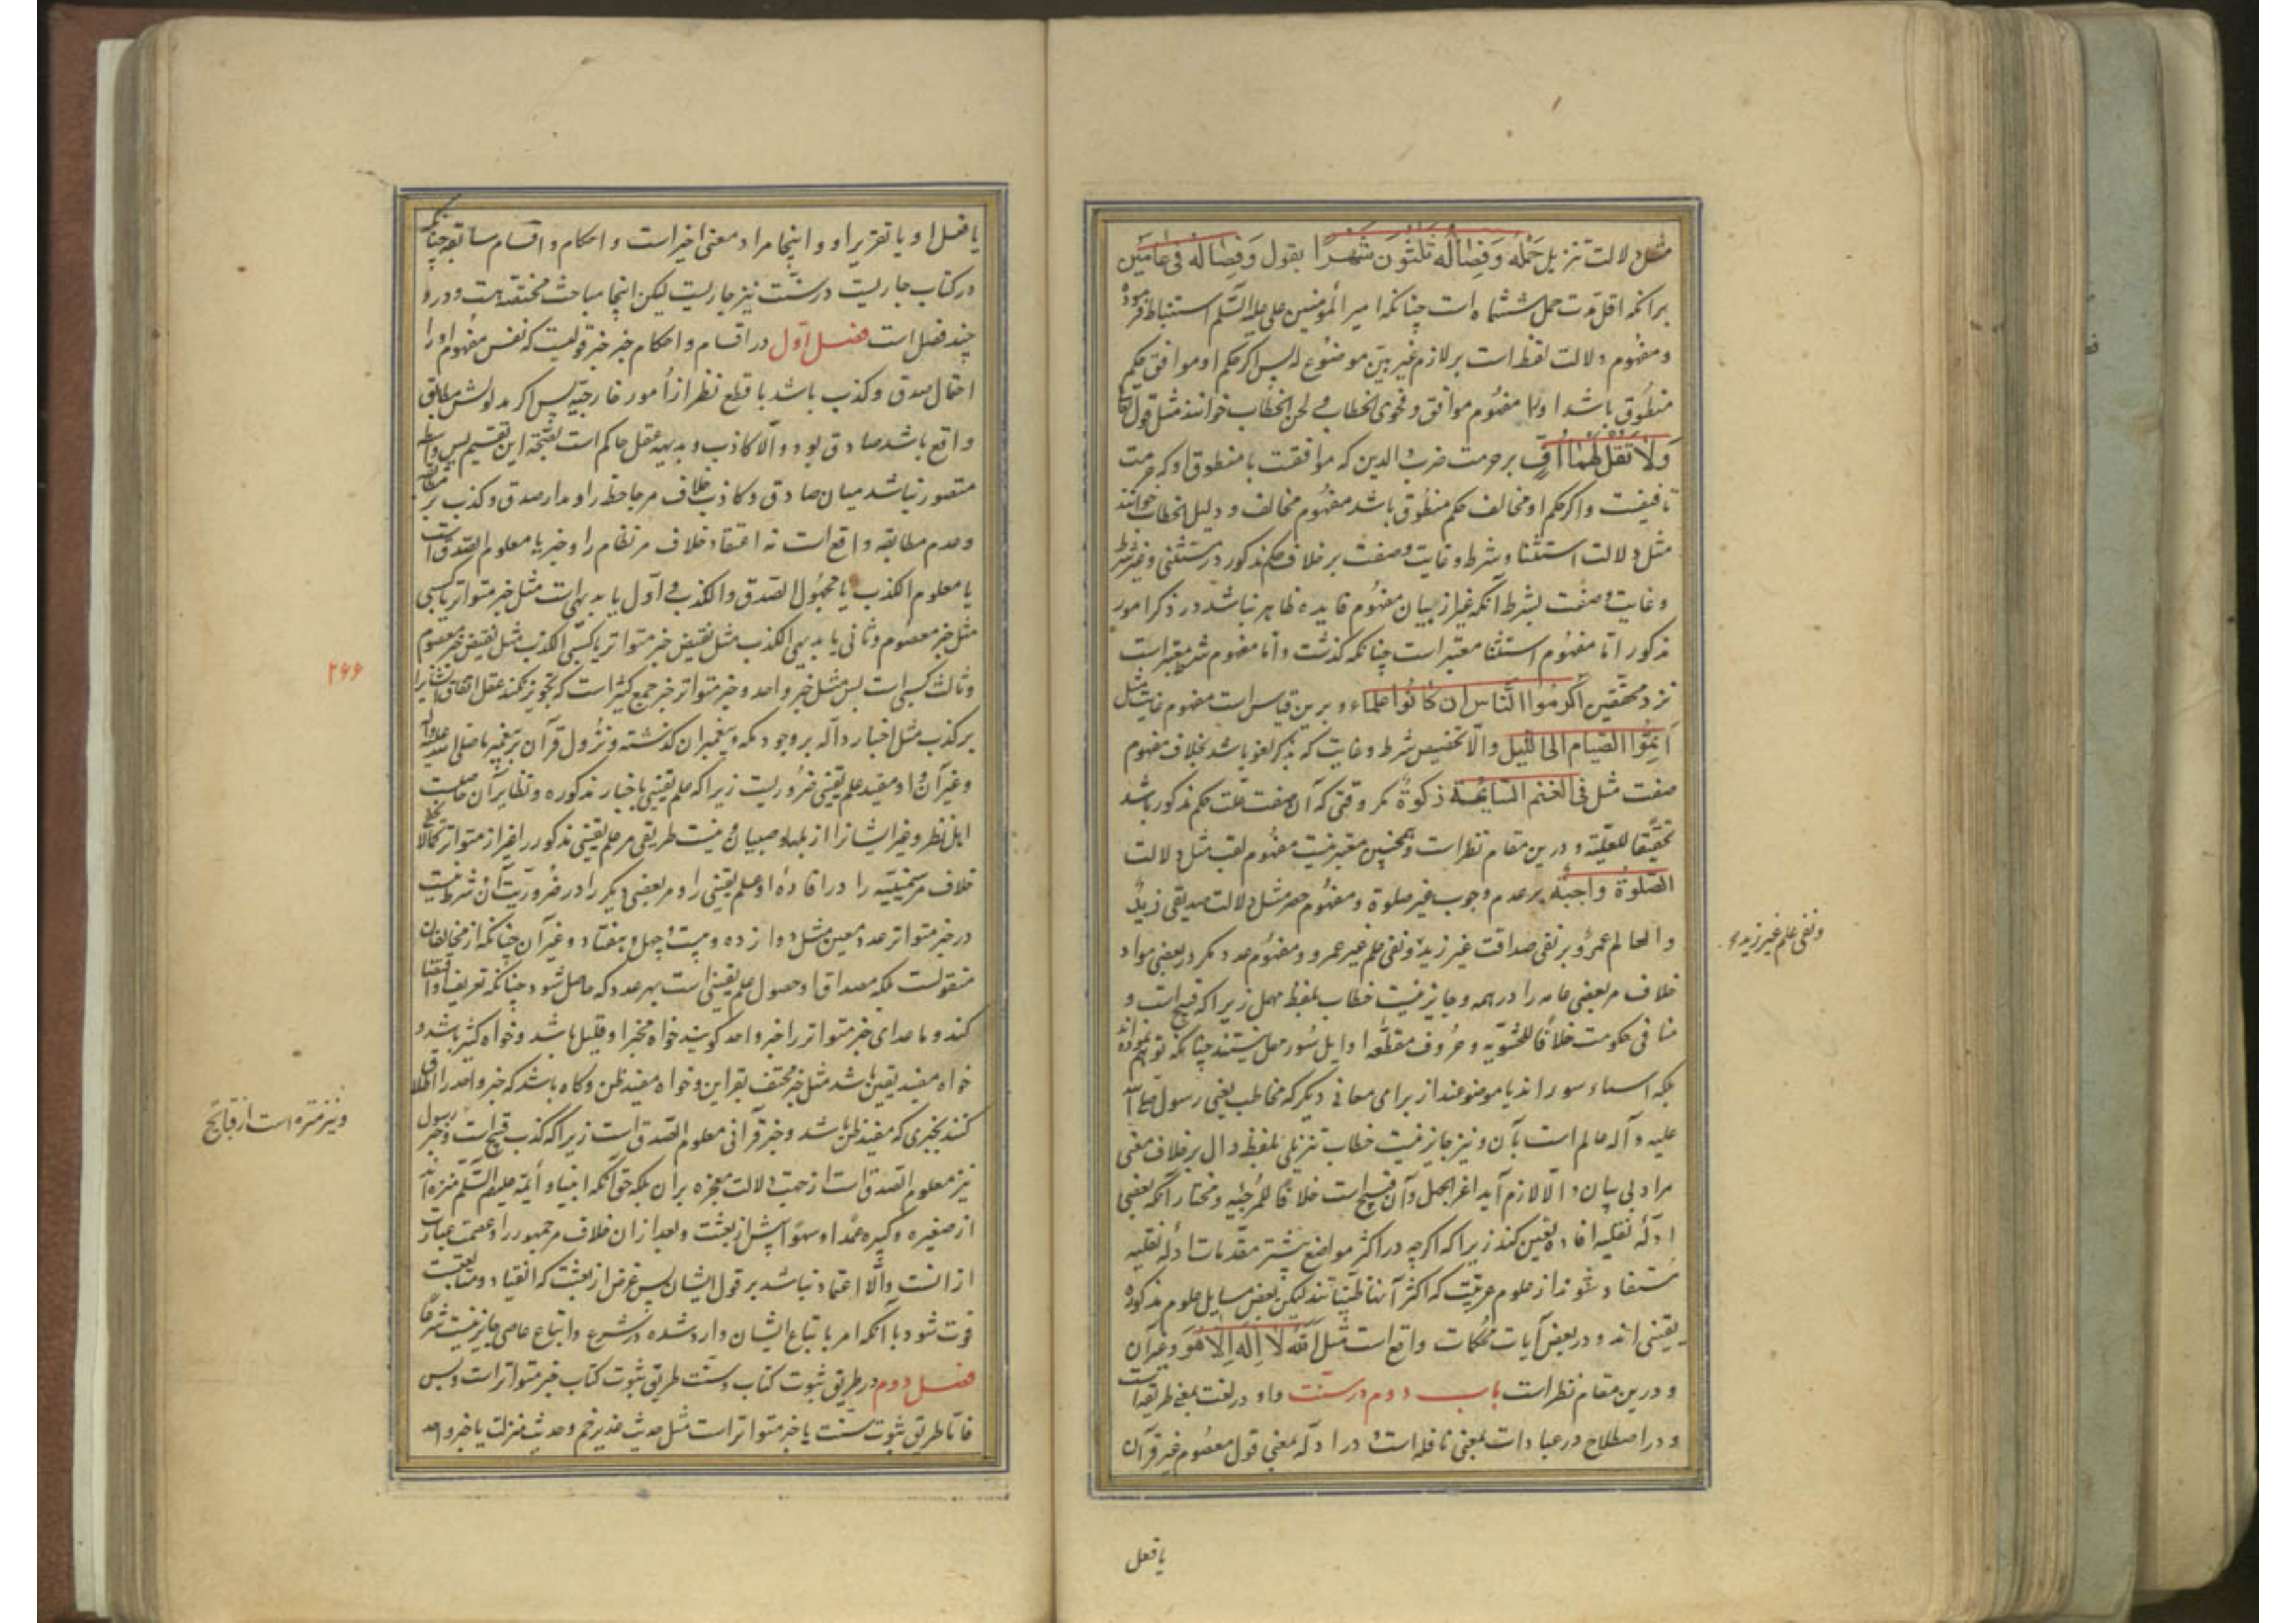 مثل دلالت تنزیل حَمْلُه وَفِصَالُه ثلثون شَهْرًا بقول وَفِصَالُه فی عامَین
برانکه اقل مدت حمل ششماه است چنانکه امیر المؤمنین علی علیه السّلم استنباط فرموده
و مفهوم دلالت لفظ است بر لازم غیر بیّن موضوع له پس اگر حکم او موافق حکم
منطوق باشد اورا مفهوم موافق و فحوی الخطاب و لحن الخطاب خوانند مثل قول تعالی
وَلَا تَقُل لَهُمَا اُفٍّ بر حرمت ضرب والدین که موافقت با منطوق او که حرمت
تافیفست و اگر حکم او مخالف حکم منطوق باشد مفهوم مخالف و دلیل الخطاب خوانند
مثل دلالت استثنا و شرط و غایت و صفت بر خلاف حکم مذکور در مستثنی و غیر شرط
و غایت و صفت بشرط آنکه غیر از بیان مفهوم فایده ظاهر نباشد در ذکر امور
مذکور امّا مفهوم استثنا معتبر است چنانکه گذشت و امّا مفهوم شرط معتبر است
نزد محققین اکرموا الناس ان کانوا علماء و برین قیاس است مفهوم غایت مثل
اَتِمُّوا الصیام الی اللیل و الّا تخصیص شرط و غایت که بذکر لغو باشد بخلاف مفهوم
صفت مثل فی الغنم السایمة زکوة مگر وقتی که آن صفت علت حکم مذکور باشد
تحقیقا للعلیّة و درین مقام نظر است و همچنین معتبر نیست مفهوم لقب مثل دلالت
الصّلوة واجبة بر عدم وجوب غیر صلوة و مفهوم حصر مثل دلالت صدیقی زیدٌ
و العالم عمرو بر نفی صداقت غیر زید و نفی علم غیر عمرو و مفهوم عدد مگر در بعضی مواد
خلاف مر بعضی عامه را در همه و جایز نیست خطاب بلفظ مهمل زیرا که قبیح است و
منافی حکومت خلافًا للحشویّه و حروف مقطّعه اوایل سُوَر مهمل نیستند چنانکه توهّم نموده اند
بلکه اسماء سور اند یا موضوعند از برای معانی دیگر که مخاطب یعنی رسول صلی الله
علیه و آله عالم است بآن و نیز جایز نیست خطاب تنزیلی بلفظ دال بر خلاف معنی
مراد بی بیان و الّا لازم آید اغرا بجهل و آن قبیح است خلافًا للمرجئیه و مختار آنکه بعضی
ادلّه نقلیه افاده یقین کند زیرا که اگرچه در اکثر مواضع بیشتر مقدّمات ادله نقلیه
مستفاد شوند از علوم عربیّت که اکثر آنها ظنیاتند لیکن بعض مسایل علوم مذکوره
یقینی اند و در بعض آیات محکمات واقع است مثل الله لا اله الا هو و غیر آن
و درین مقام نظر است باب دوم در سنّت و او در لغت بمعنی طریقه است
و در اصطلاح در عبادات بمعنی نافله است و در ادلّه بمعنی قول معصوم غیر قرآن
و نفی علم غیر زید
یا فعل
یا فعل او یا تقریر او و اینجا مراد معنی اخیر است و احکام و اقسام سابقه چنانکه
در کتاب جاریست در سنّت نیز جاریست لیکن اینجا مباحث مختصه هست و درو
چند فصل است فصل اوّل در اقسام و احکام خبر خبر قولیست که نفس مفهوم او را
احتمال صدق و کذب باشد با قطع نظر از اُمور خارجیّه پس اگر مدلولش مطابق
واقع باشد صادق بود و الّا کاذب و بدیهه عقل حاکم است بصحّة این تقسیم پس واسطه
متصور نباشد میان صادق و کاذب خلاف مر جاحظ را و مدار صدق و کذب بر مطابقه
و عدم مطابقه واقع است نه اعتقاد خلاف مر نظام را و خبر یا معلوم الصّدق است
یا معلوم الکذب یا مجهول الصّدق و الکذب و اوّل یا بدیهی است مثل خبر متواتر یا کسبی
مثل خبر معصوم و ثانی یا بدیهی الکذب مثل نقیض خبر متواتر یا کسبی الکذب مثل نقیض خبر معصوم
و ثالث کسبی است بس مثل خبر واحد و خبر متواتر خبر جمع کثیر است که تجویز نکند عقل اتفاق ایشانرا
بر کذب مثل اخبار داله بر وجود مکه و پیغمبران گذشته و نزول قرآن بر پیغمبر ما صلی الله علیه و آله
و غیر آن و او مفید علم یقینی ضروریست زیرا که علم یقینی باخبار مذکوره و نظایر آن حاصلست
اهل نظر و غیر ایشانرا از بلها و صبیان و نیست طریقی مر علم یقینی مذکور را غیر از متواتر کمالا یخفی
خلاف مر سمنیّیه را در افادهٔ او علم یقینی را و مر بعضی دیگر را در ضروریّت آن و شرط نیست
در خبر متواتر عدد معین مثل دوازده و بیست و چهل و هفتاد و غیر آن چنانکه از مخالفان
منقولست بلکه مصداق او حصول علم یقینی است بهر عدد که حاصل شود چنانکه تعریف او اقتضا
کند و ما عدای خبر متواتر را خبر واحد گویند خواه مخبر او قلیل باشد و خواه کثیر باشد و
خواه مفید یقین باشد مثل خبر محتف بقراین و خواه مفید ظن و گاه باشد که خبر واحد را اطلاق
کنند بخبری که مفید ظن باشد و خبر قرآنی معلوم الصّدق است زیرا که کذب قبیح است و خبر رسول
نیز معلوم الصّدق است از جهت دلالت معجزه بران بلکه حق آنکه انبیا و أئمّه علیهم السّلم منزه اند
از صغیره و کبیره عمدا و سهوًا پیش از بعثت و بعد از ان خلاف مر جمهور را و عصمت عبارت
از انست و الّا اعتماد نباشد بر قول ایشان پس غرض از بعثت که انقیاد و متابعت
فوت شود با آنکه امر باتباع ایشان وارد شده در شرع و اتباع عاصی جایز نیست شرعًا
فصل دوم در طریق ثبوت کتاب و سنّت طریق ثبوت کتاب خبر متواتر است و بس
فامّا طریق ثبوت سنّت یا خبر متواتر است مثل حدیث غدیر خم و حدیث منزلت یا خبر واحد
۲۶۶
و نیز منزه است از قبایح